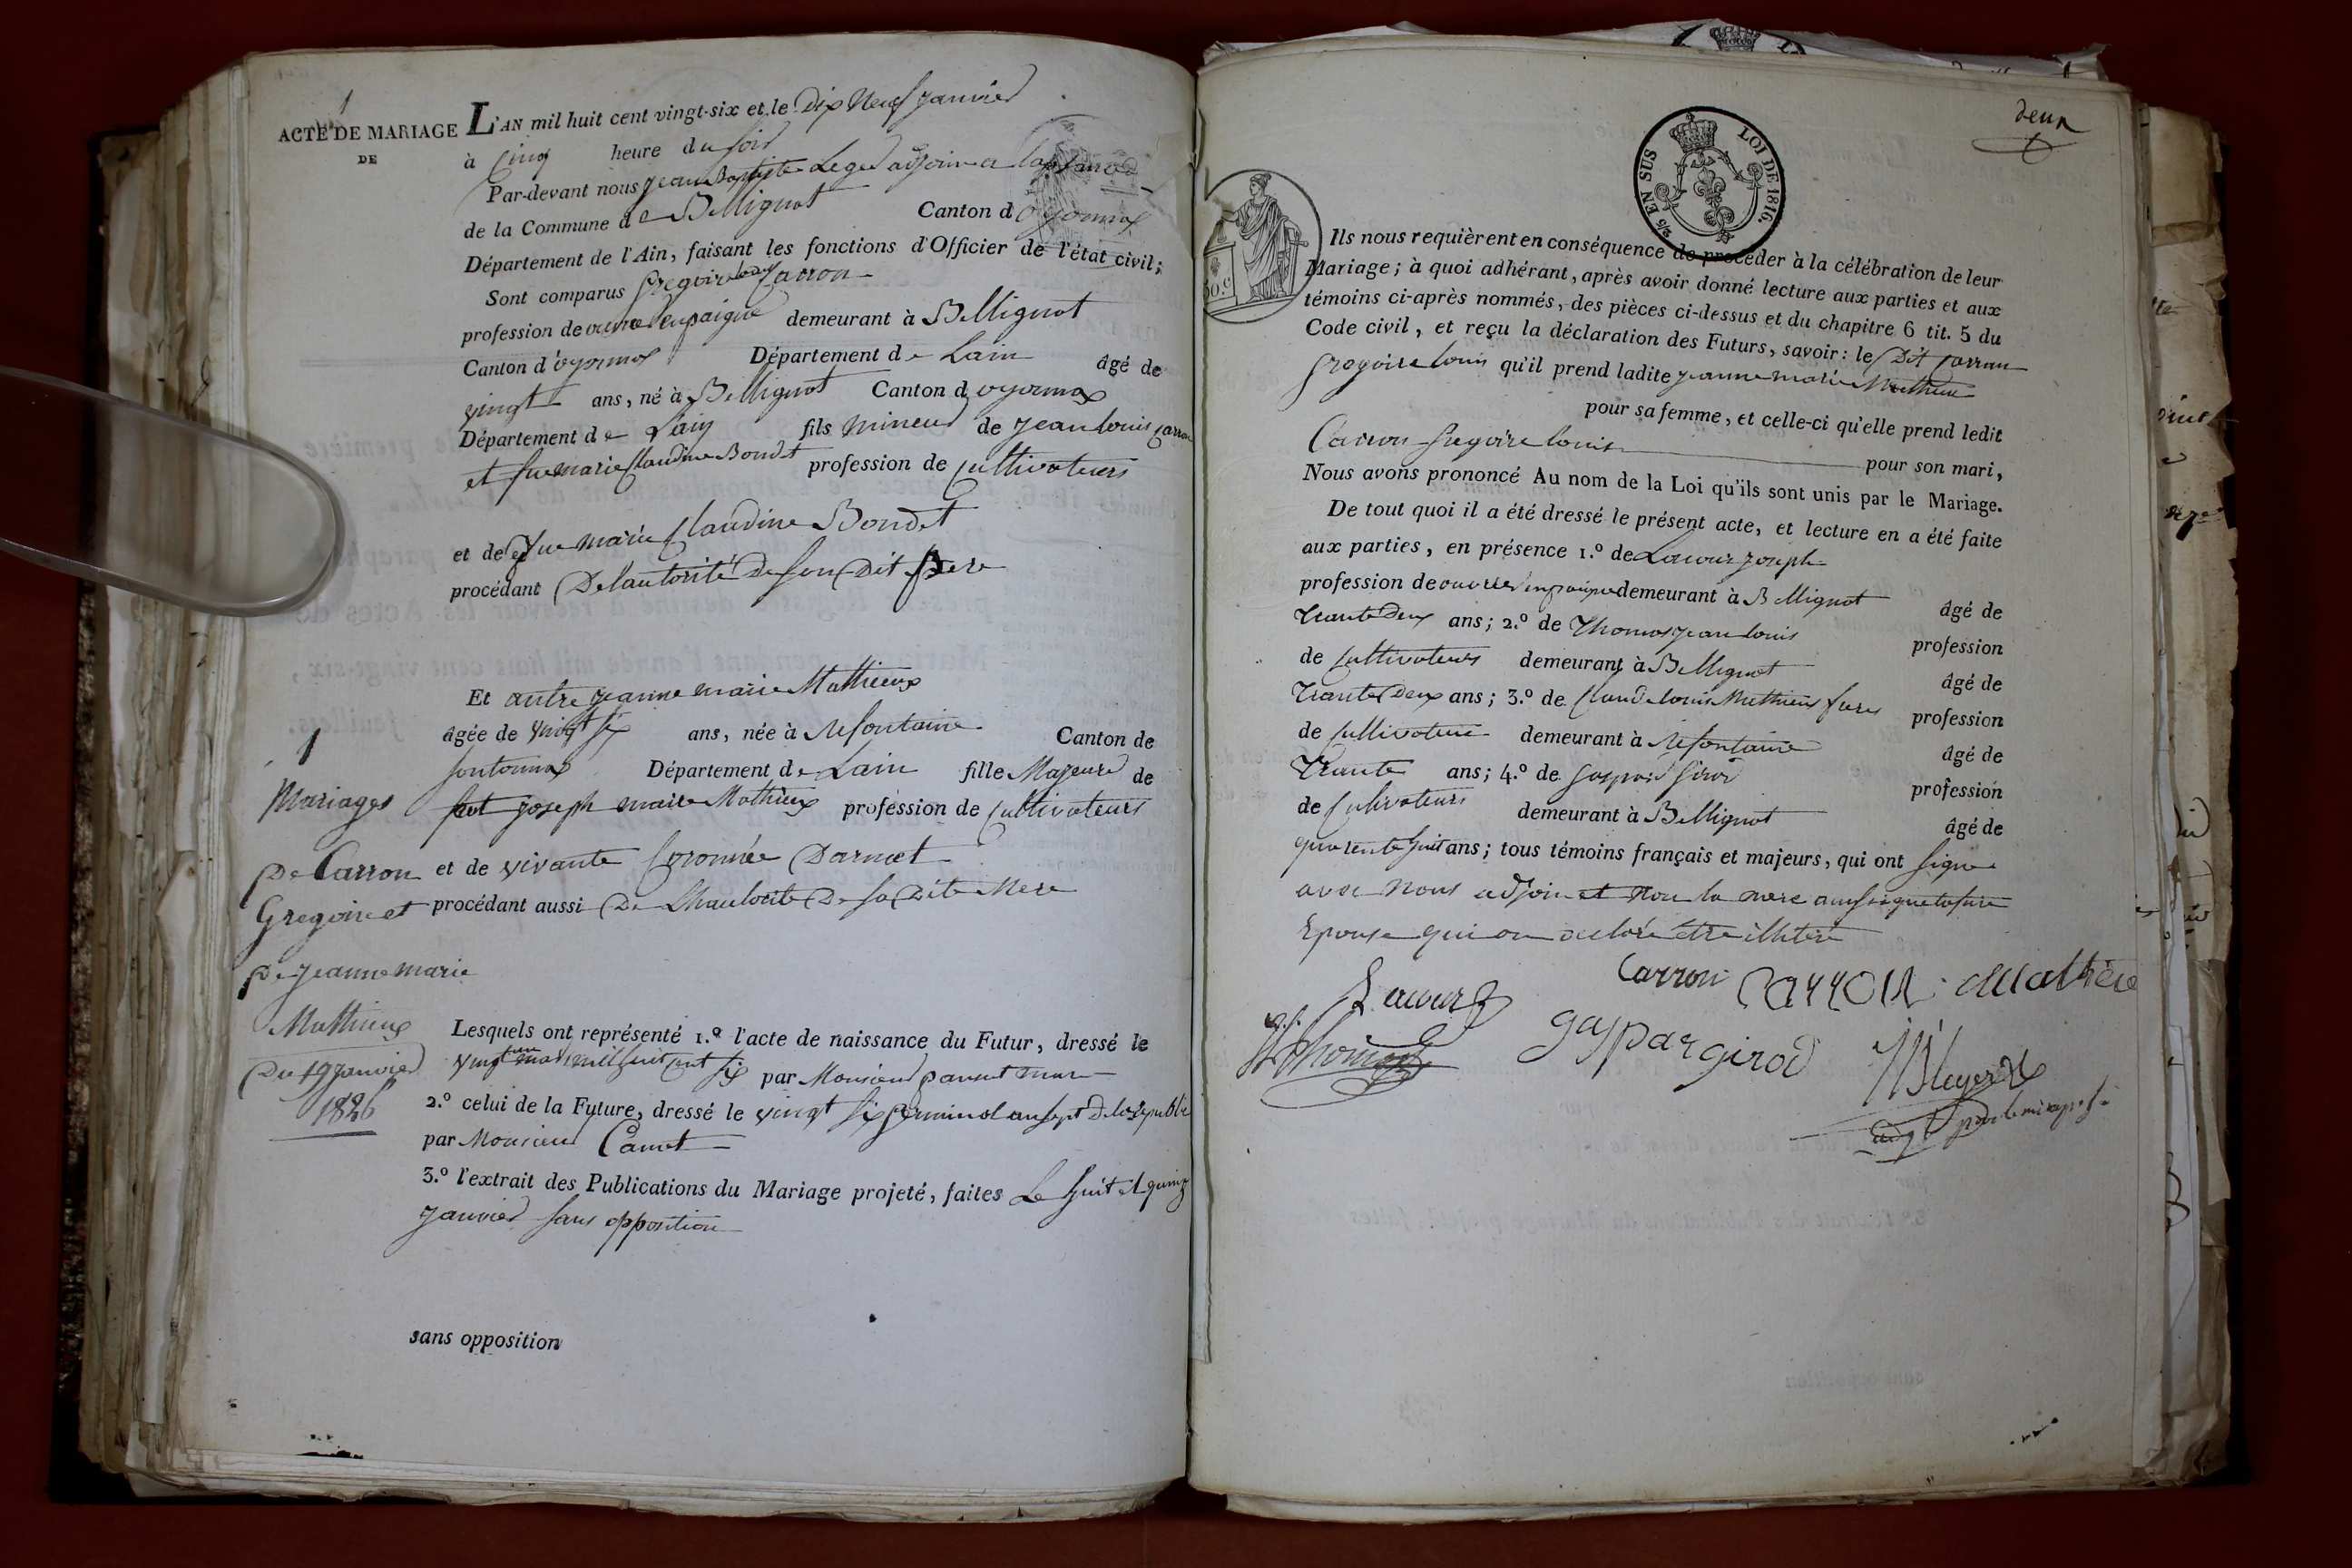 1
ACTE DE MARIAGE
DE
L'AN mil huit cent vingt-six et le Dix Neuf janvier
à Cinq heure du soir
Par-devant nous Jean Baptiste Leger adjoint
de la Commune de Bellignat Canton d'oyonnax
Département de l'Ain, faisant les fonctions d'Officier de l'état civil;
Sont comparus Gregoire Louis Carron
profession de demeurant à Bellignat
Canton d'oyonnax Département de Lain âgé de
vingt ans, né à Bellignat Canton d oyonnax
Département de Lain fils mineur de Jean louis Carron
et fue marie Claudine Bondet profession de Cultivateurs
et de fue marie Claudine Bondet
procédant De lautorité de son Dit pere
Et autre jeanne marie Mathieux
âgée de vingt six ans, née à Canton de
Département de Lain fille Majeure de
joseph marie Mathieux profession de Cultivateurs
et de vivante
procédant aussi De Lhautorité De sa Dite Mere
1
Mariages
De Carron
Gregoire et
De jeanne marie
Mathieux
Du 19 janvier
1826
Lesquels ont représenté 1.º l'acte de naissance du Futur, dressé le
vingt mai mil huit cent six par Monsieur
2.º celui de la Future, dressé le vingt six germinal an sept de la
par Monsieur
3.º l'extrait des Publications du Mariage projeté, faites Le huit et quinz
janvier sans opposition
sans opposition
deux
2/5 EN SUS
LOI DE 1816.
50.c
Ils nous requièrent en conséquence de procéder à la célébration de leur
Mariage; à quoi adhérant, après avoir donné lecture aux parties et aux
témoins ci-après nommés, des pièces ci-dessus et du chapitre 6 tit. 5 du
Code civil, et reçu la déclaration des Futurs, savoir: le Dit Carron
gregoire louis qu'il prend ladite jeanne marie Mathieux
pour sa femme, et celle-ci qu'elle prend ledit
Carron Gregoire louis pour son mari,
Nous avons prononcé Au nom de la Loi qu'ils sont unis par le Mariage.
De tout quoi il a été dressé le présent acte, et lecture en a été faite
aux parties, en présence 1.º de Lacour joseph
profession de demeurant à Bellignat âgé de
trante Deux ans; 2.º de Thomas jean louis profession
de Cultivateurs demeurant à Bellignat âgé de
trante Deux ans; 3.º de Claude louis Mathieux profession
de Cultivateur demeurant à âgé de
trante ans; 4.º de gaspard girod profession
de Cultivateurs demeurant à Bellignat âgé de
quarente huit ans; tous témoins français et majeurs, qui ont signe
avec nous adjoin et non la mere
Epouse qui on declaré être
Lacour
Carron Carron Mathieu
gaspar girod
JB Leger